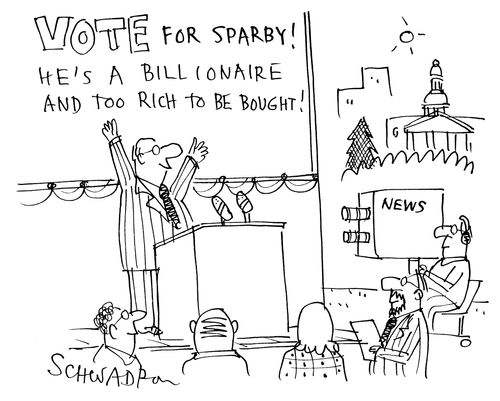 VOTE FOR SPARBY!
HE'S A BILLIONAIRE
AND TOO RICH TO BE BOUGHT!
NEWS
SCHWADRON